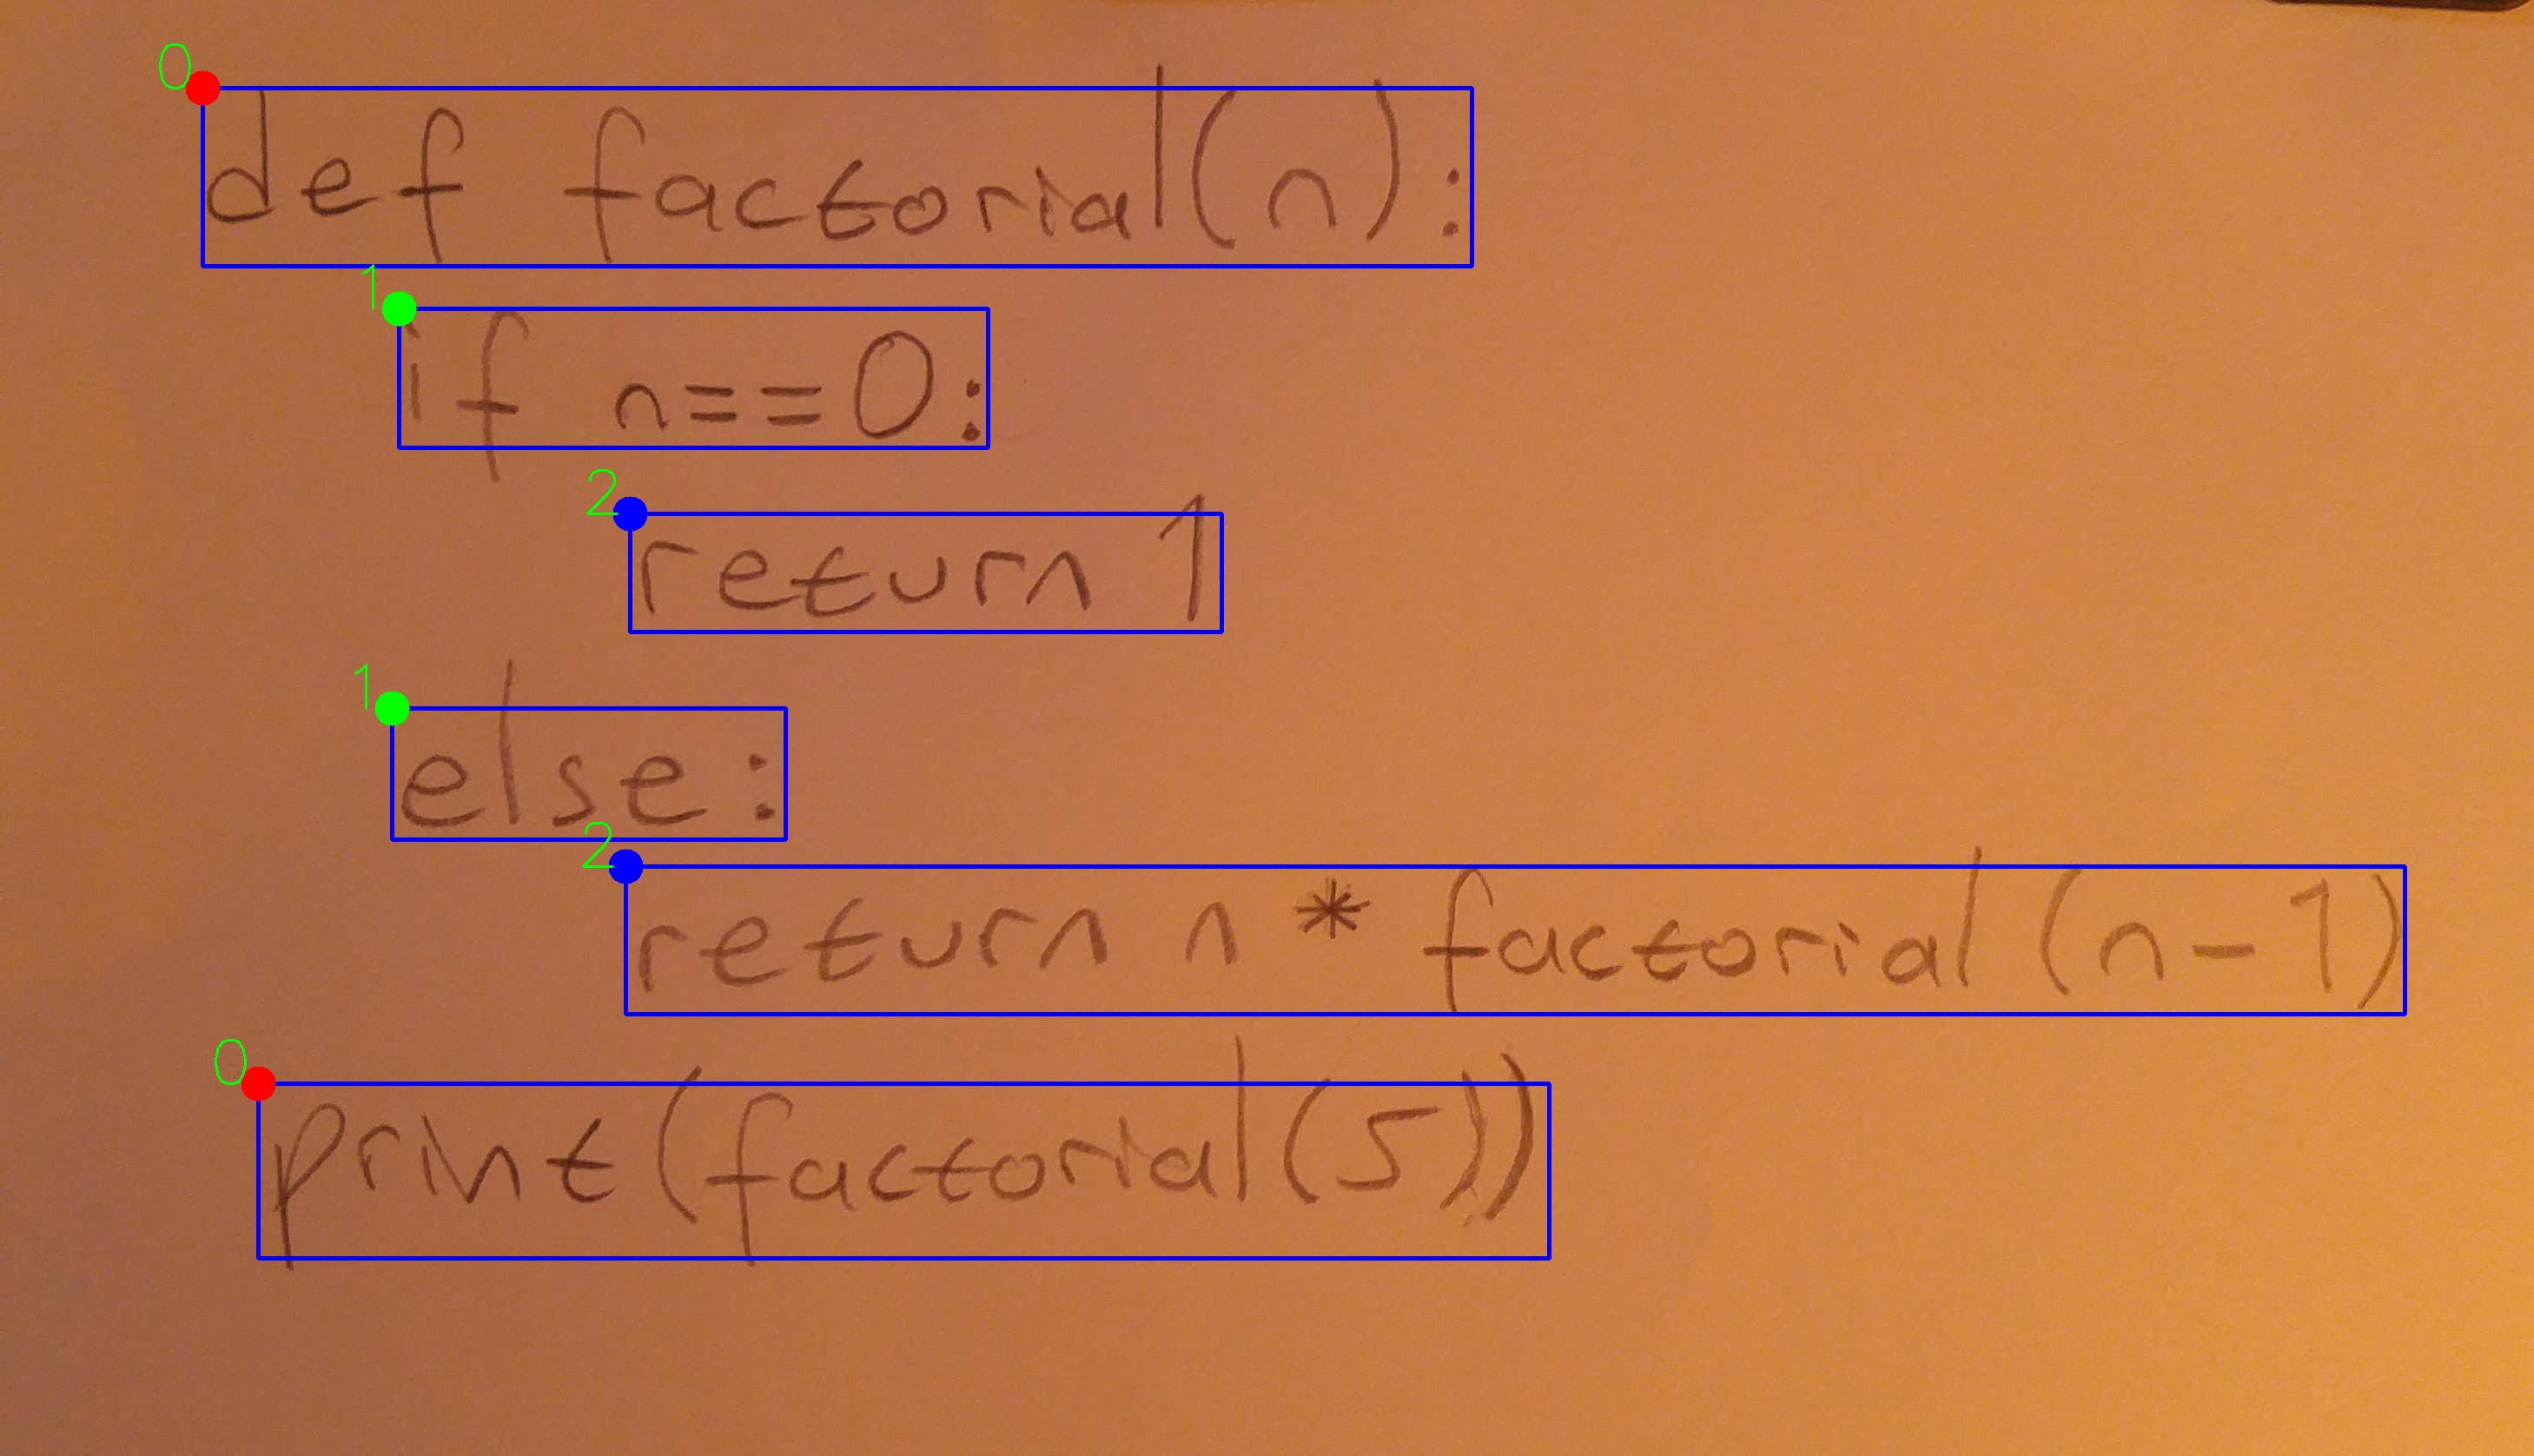 0
def factorial(n):
1
if n==0:
2
return 1
1
else:
2
return n * factorial(n-1)
0
print(factorial(5))